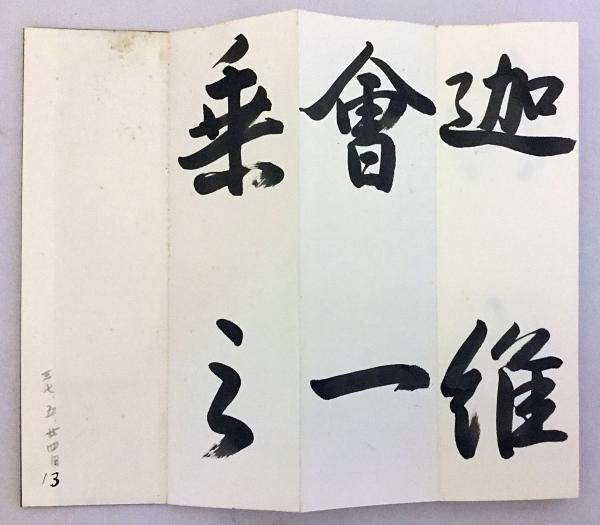 迦維
會一
乗之
三七、五、廿四日
13